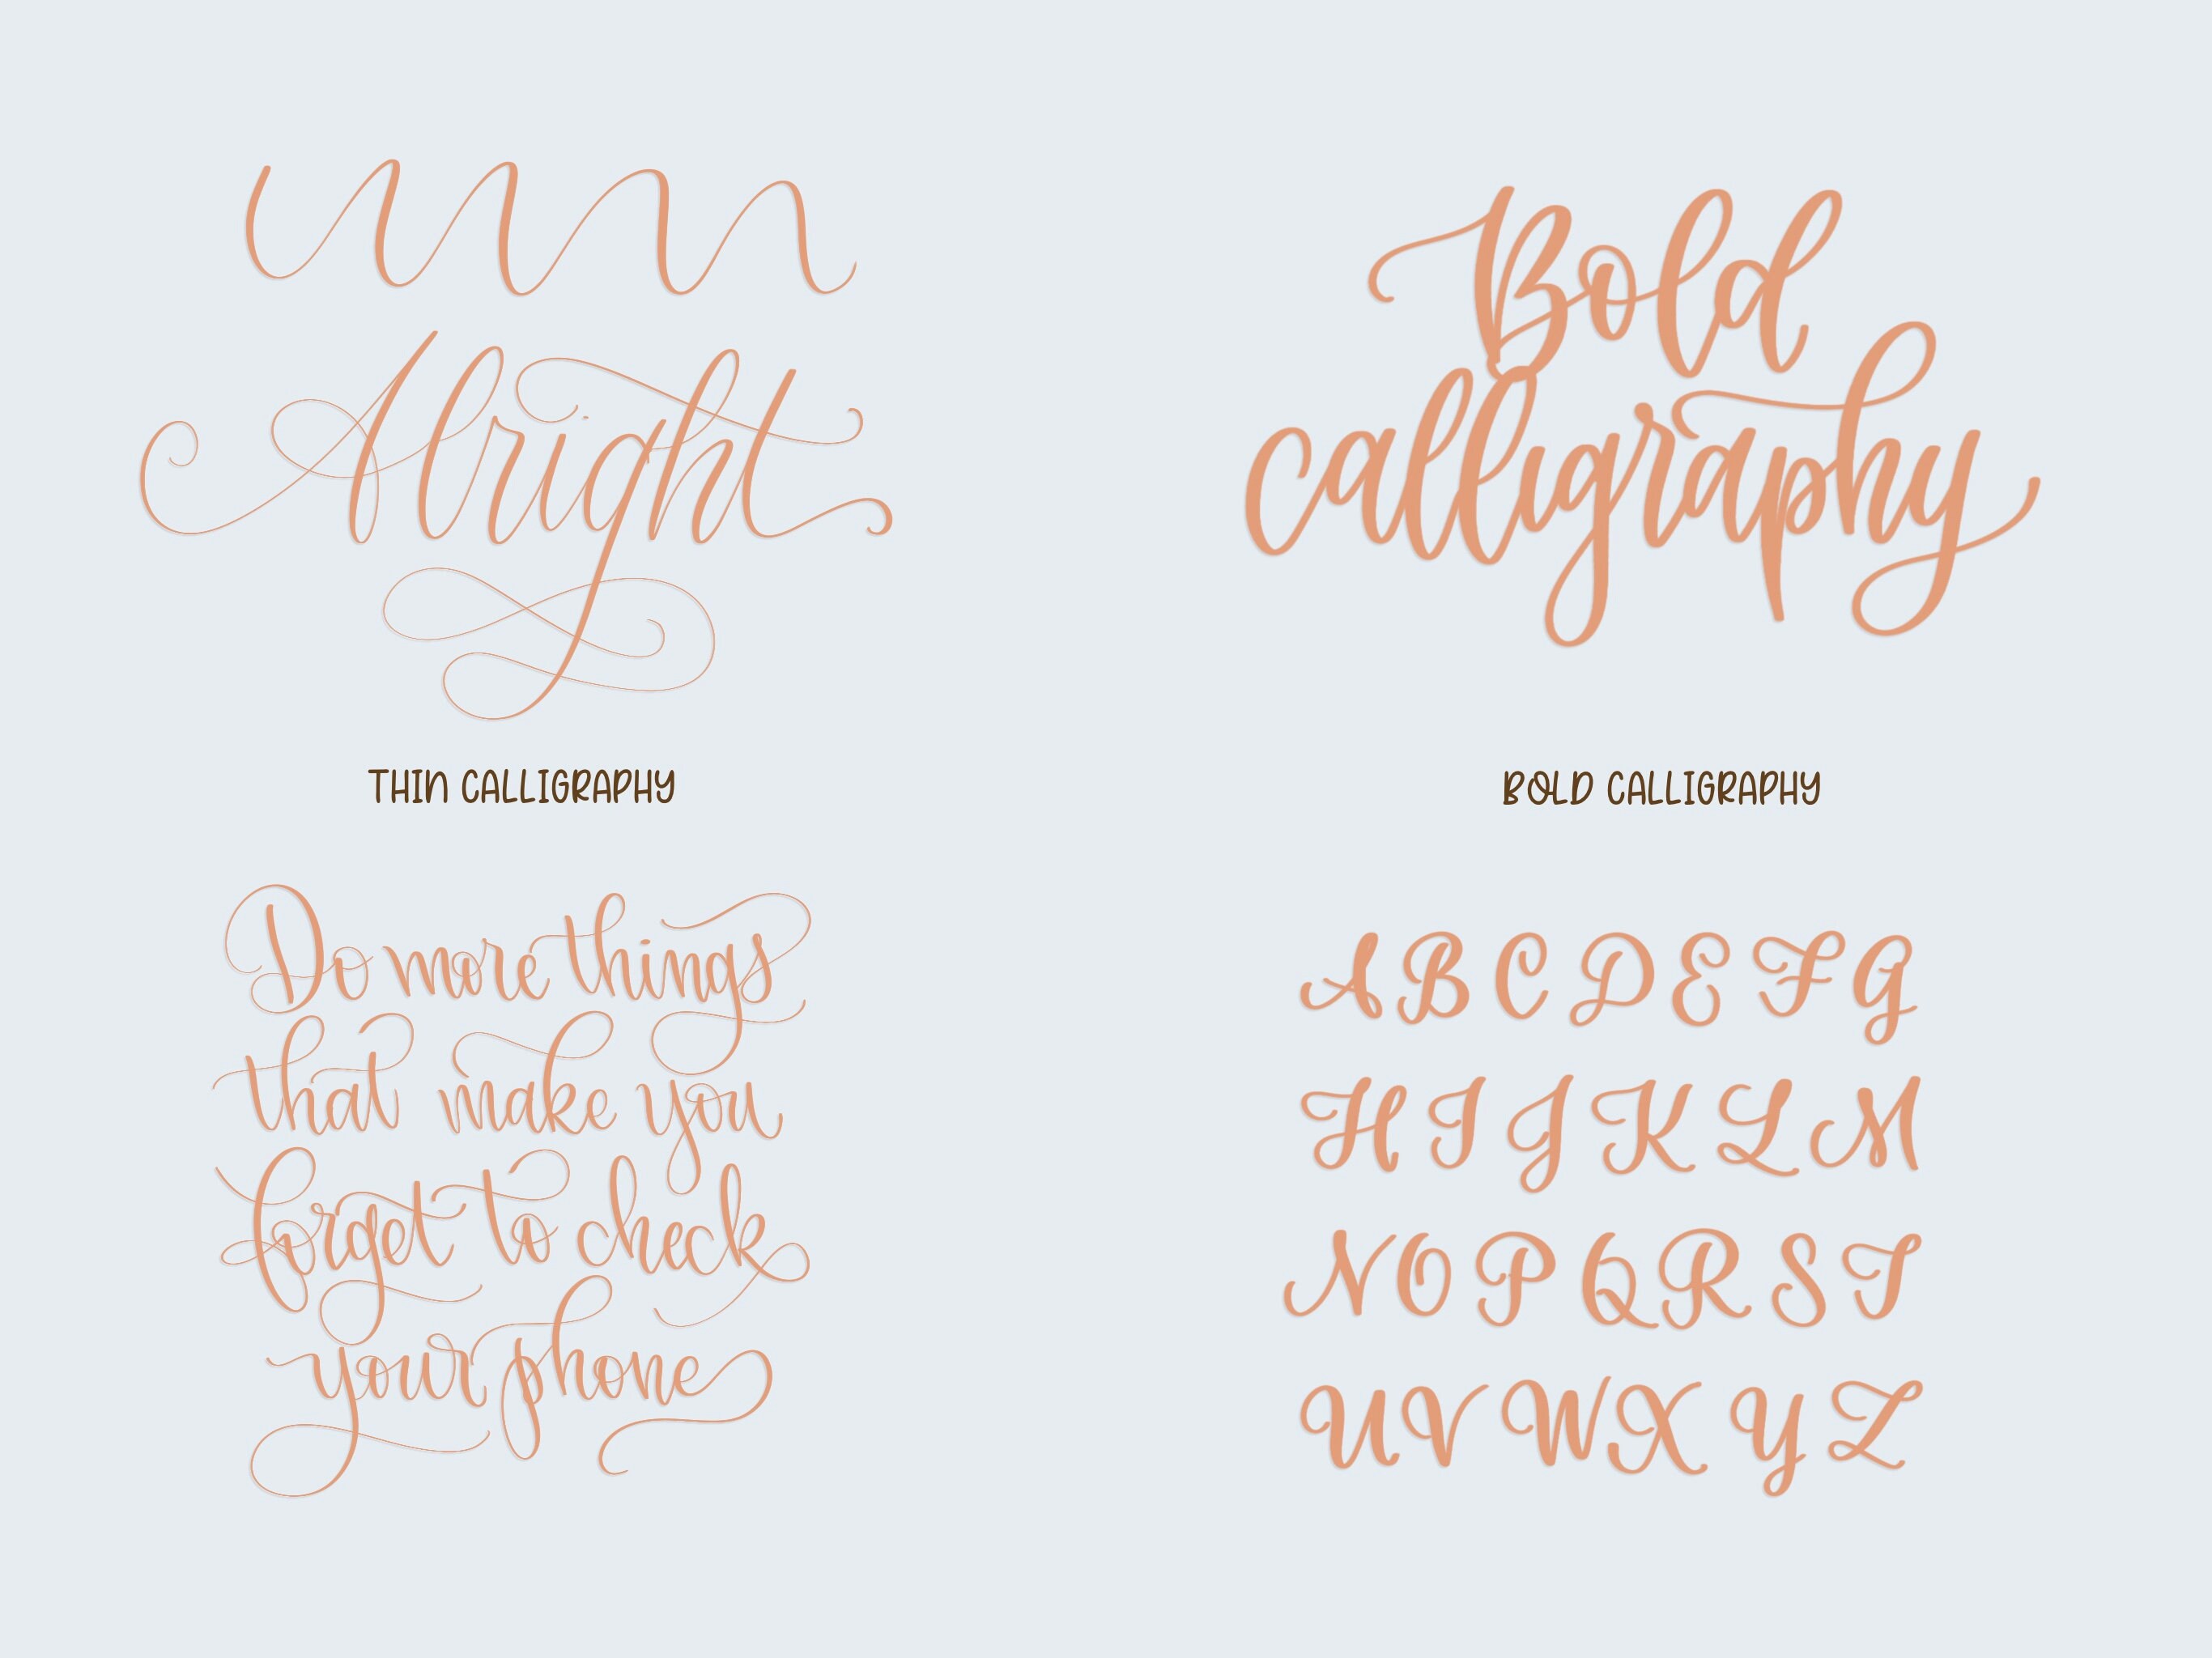 Alright
THIN CALLIGRAPHY
Do more things
that make you
forget to check
your phone
Bold
calligraphy
BOLD CALLIGRAPHY
A B C D E F G
H I J K L M
N O P Q R S T
U V W X Y Z